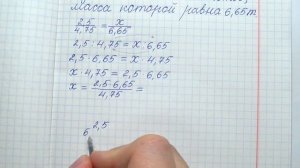 масса которой равна 6,65т
2,5/4,75 = x/6,65
2,5 : 4,75 = x : 6,65
2,5 · 6,65 = x · 4,75
x · 4,75 = 2,5 · 6,65
x = 2,5 · 6,65/4,75 =
2,5
6